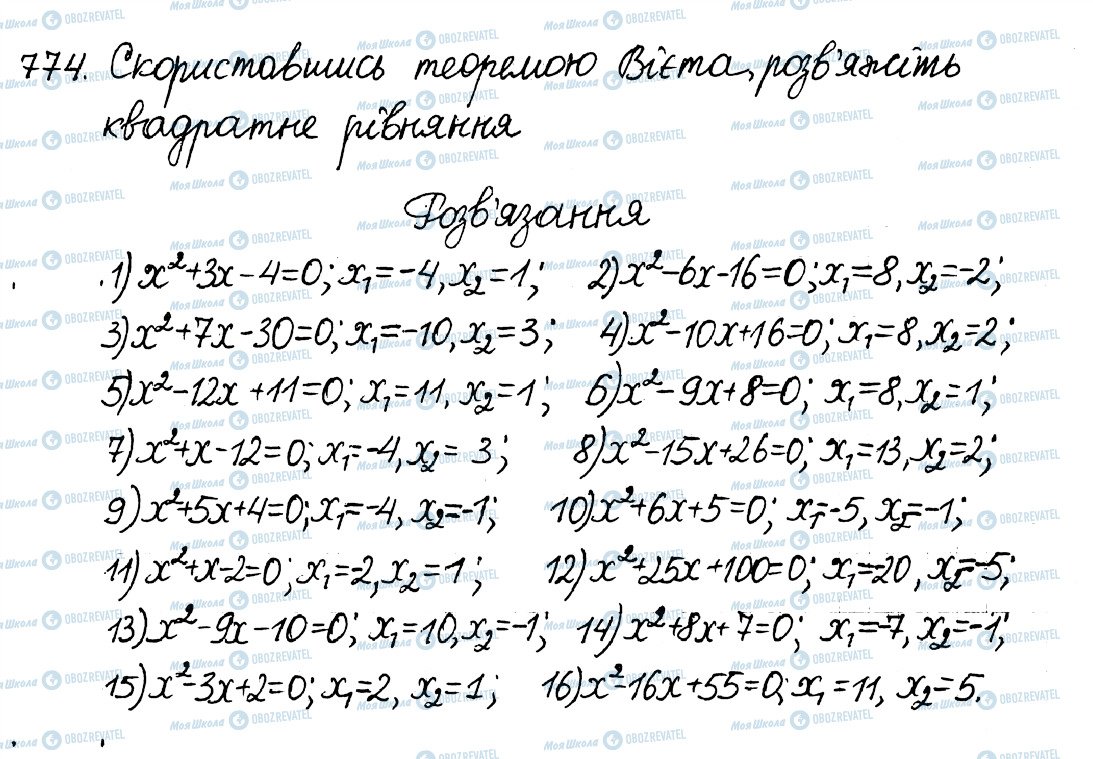 774. Скориставшись теоремою Вієта, розв'яжіть
квадратне рівняння
Розв'язання
1) x²+3x-4=0; x₁=-4, x₂=1; 2) x²-6x-16=0; x₁=8, x₂=-2;
3) x²+7x-30=0; x₁=-10, x₂=3; 4) x²-10x+16=0; x₁=8, x₂=2;
5) x²-12x+11=0; x₁=11, x₂=1; 6) x²-9x+8=0; x₁=8, x₂=1;
7) x²+x-12=0; x₁=-4, x₂=3; 8) x²-15x+26=0; x₁=13, x₂=2;
9) x²+5x+4=0; x₁=-4, x₂=-1; 10) x²+6x+5=0; x₁=-5, x₂=-1;
11) x²+x-2=0; x₁=-2, x₂=1; 12) x²+25x+100=0; x₁=-20, x₂=-5;
13) x²-9x-10=0; x₁=10, x₂=-1; 14) x²+8x+7=0; x₁=-7, x₂=-1;
15) x²-3x+2=0; x₁=2, x₂=1; 16) x²-16x+55=0; x₁=11, x₂=5.